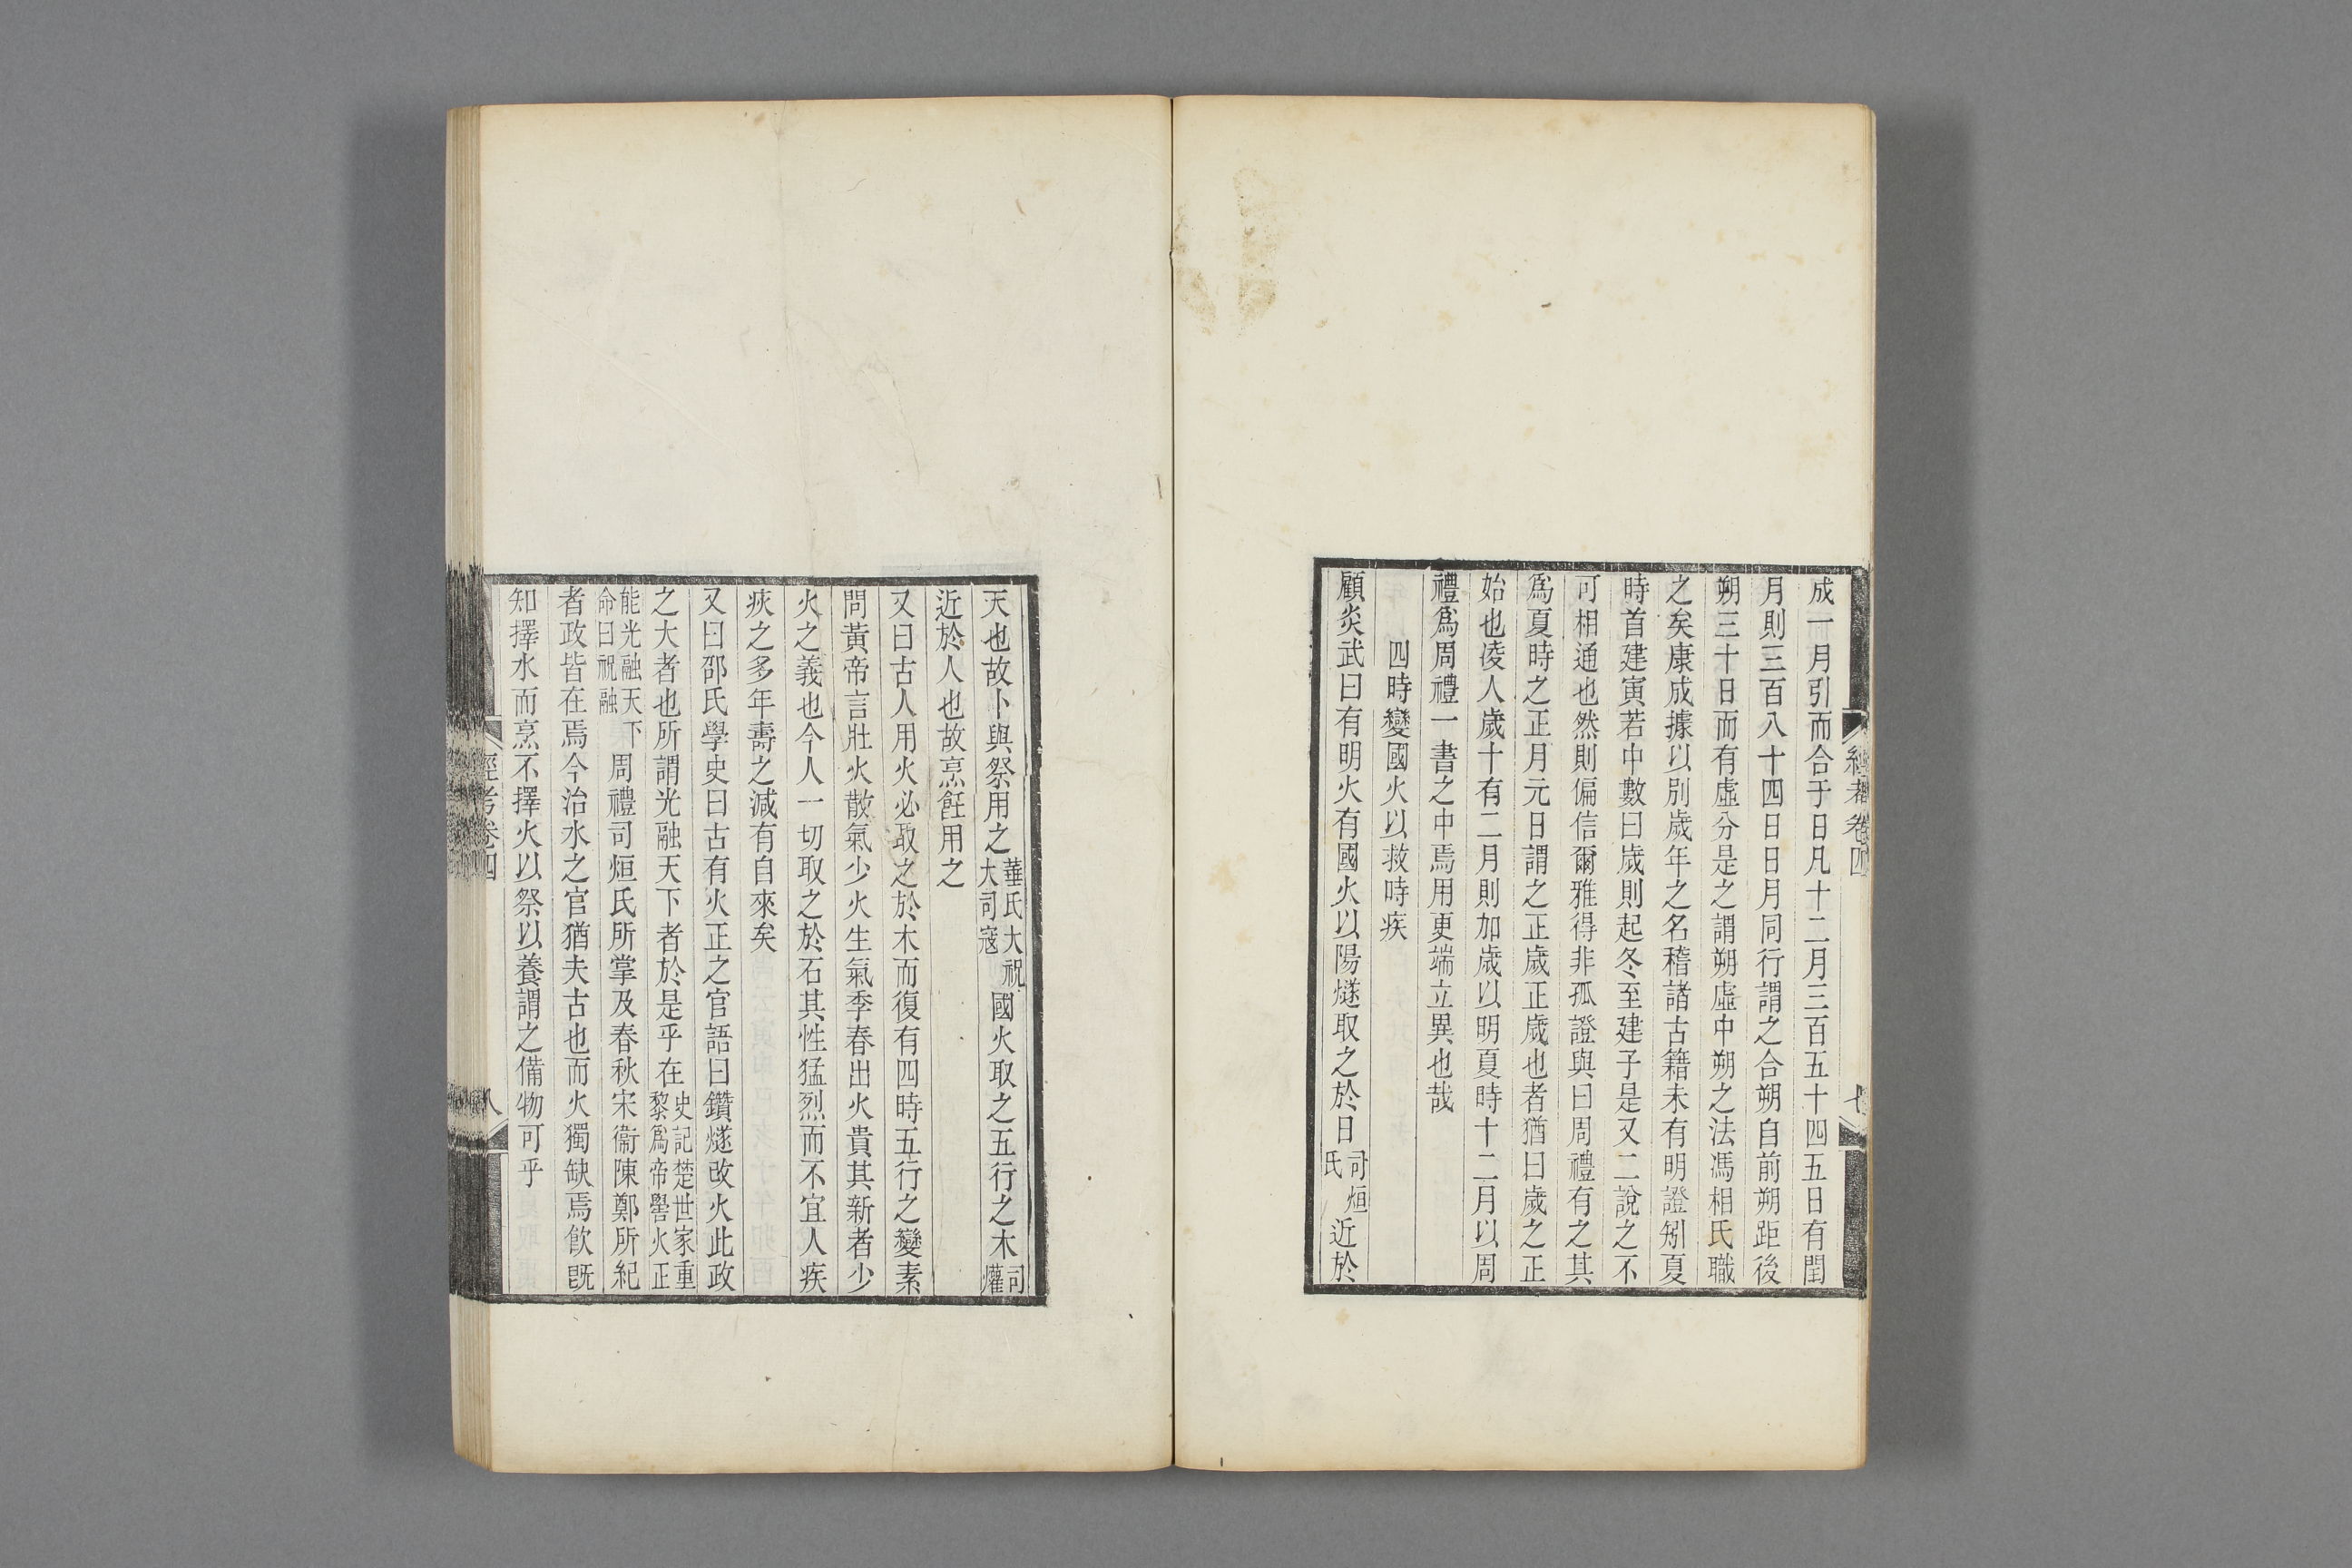 成一月引而合于日凡十二月三百五十四五日有閏
月則三百八十四日日月同行謂之合朔自前朔距後
朔三十日而有虛分是之謂朔虛中朔之法馮相氏職
之矣康成據以別歲年之名稽諸古籍未有明證矧夏
時首建寅若中數曰歲則起冬至建子是又二說之不
可相通也然則偏信爾雅得非孤證與曰周禮有之其
爲夏時之正月元日謂之正歲正歲也者猶曰歲之正
始也凌人歲十有二月則加歲以明夏時十二月以周
禮爲周禮一書之中焉用更端立異也哉
四時變國火以救時疾
顧炎武曰有明火有國火以陽燧取之於日司烜氏近於
經考卷四
七
天也故卜與祭用之菙氏大祝大司寇國火取之五行之木司爟
近於人也故烹飪用之
又曰古人用火必取之於木而復有四時五行之變素
問黃帝言壯火散氣少火生氣季春出火貴其新者少
火之義也今人一切取之於石其性猛烈而不宜人疾
疢之多年壽之減有自來矣
又曰邵氏學史曰古有火正之官語曰鑽燧改火此政
之大者也所謂光融天下者於是乎在史記楚世家重黎爲帝嚳火正
能光融天下命曰祝融周禮司烜氏所掌及春秋宋衞陳鄭所紀
者政皆在焉今治水之官猶夫古也而火獨缺焉飮旣
知擇水而烹不擇火以祭以養謂之備物可乎
經考卷四
八